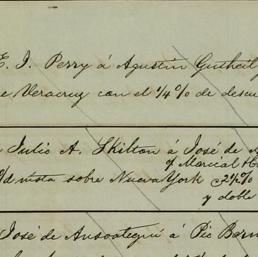 E. J. Perry á Agustin Gutheil
e Veracruz con el 1/4 % de descu
Julio A. Skilton á José de
of Marical
/d vista sobre Nueva York 2½%
y doble
José de Ansoategui á Pio Berm